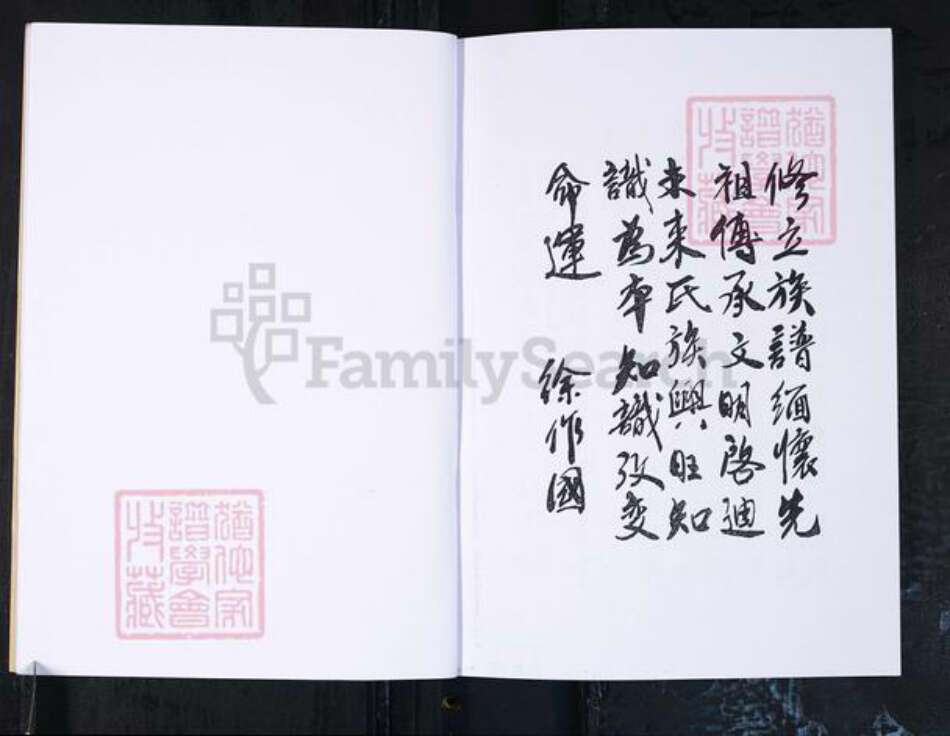 修立族譜緬懷先
祖傳承文明啓迪
未來氏族興旺知
識為本知識改變
命運 徐作國
猶他家
譜學會
收藏
FamilySearch
猶他家
譜學會
收藏